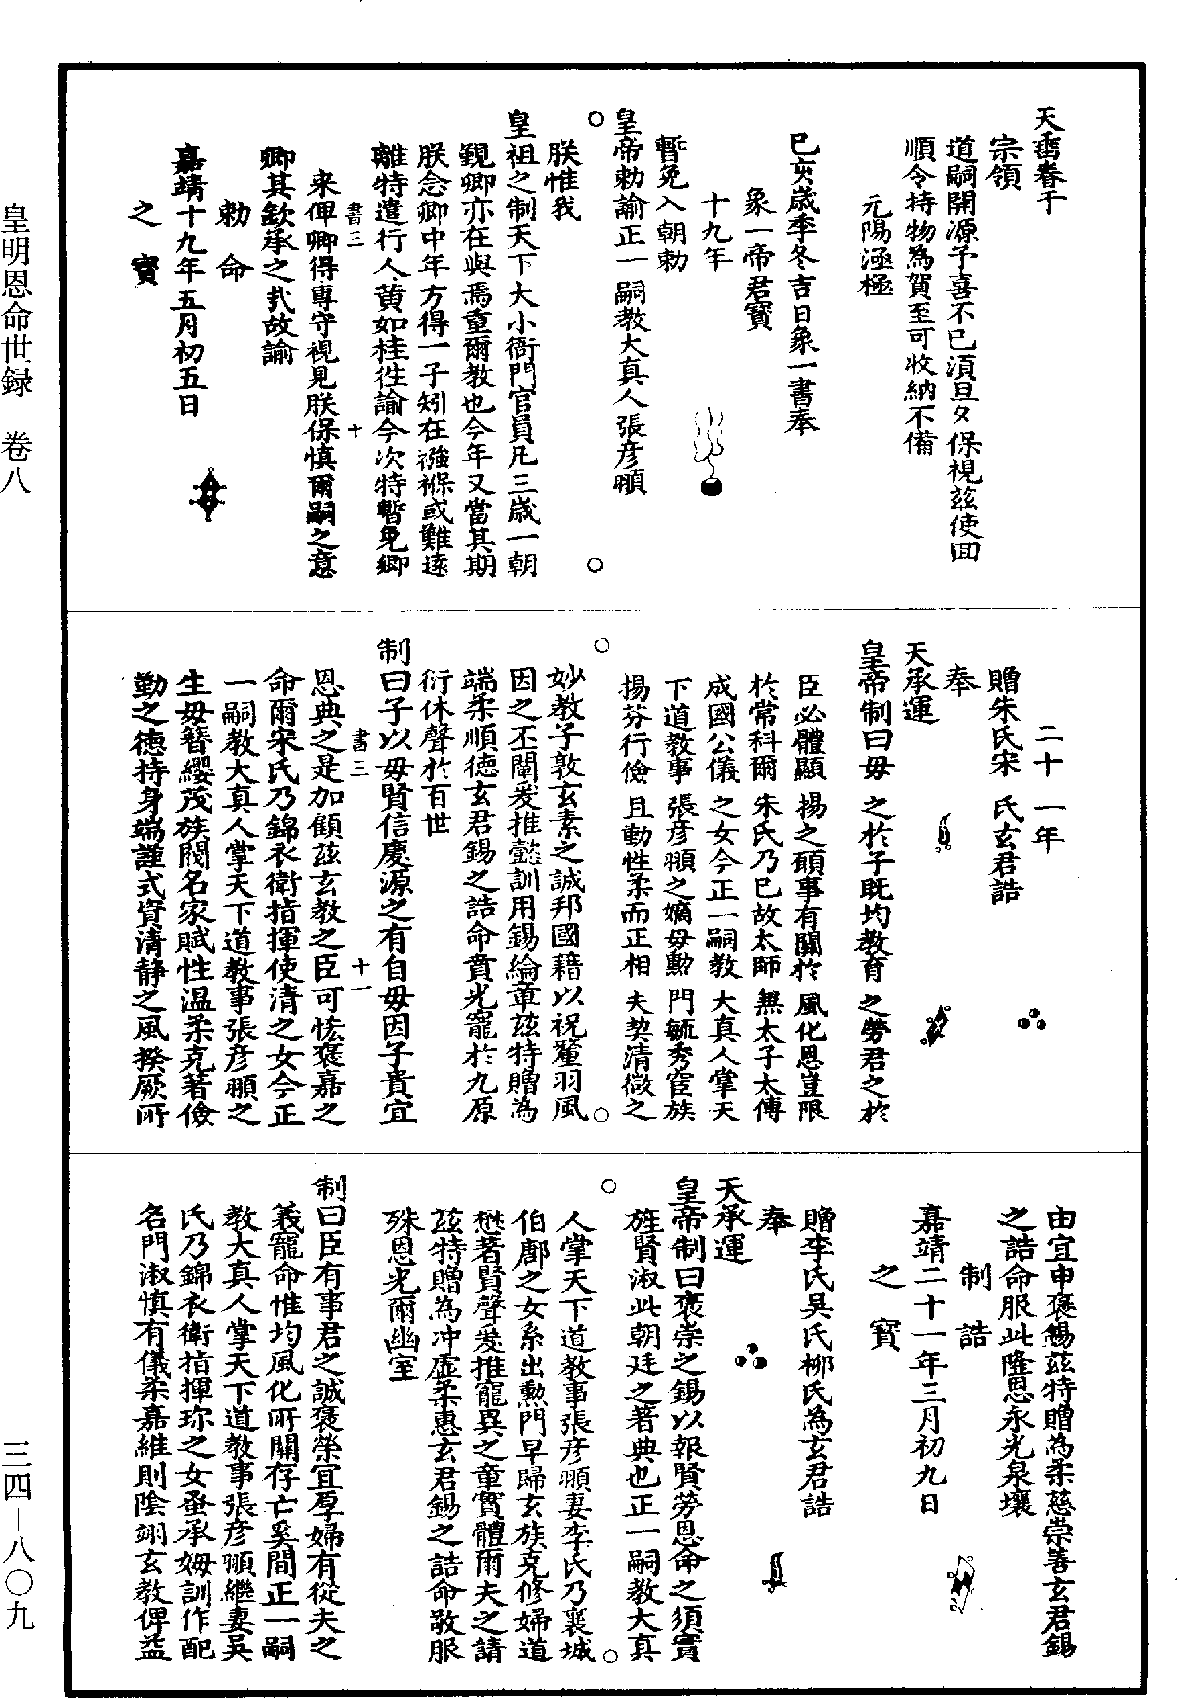 天垂春于
宗領
道嗣開源予喜不已湏旦夕保視茲使回
順令持物為賀至可收納不備
元陽涵極
已亥歲季冬吉日象一書奉
象一帝君寶
十九年
暫免入朝勅
皇帝勅諭正一嗣教大真人張彦頨
朕惟我
皇祖之制天下大小衙門官員凡三歲一朝
覲卿亦在與焉重爾教也今年又當其期
朕念卿中年方得一子矧在襁褓或難遠
離特遣行人黄如桂徃諭今次特暫免卿
書三 十
來俾卿得專守視見朕保慎爾嗣之意
卿其欽承之㢤故諭
勅命
嘉靖十九年五月初五日
之寶
二十一年
贈朱氏宋氏玄君誥
奉
天承運
皇帝制曰毋之於子旣均教育之勞君之於
臣必體顯揚之頋事有關於風化恩豈限
於常科爾朱氏乃已故太師無太子太傅
成國公儀之女今正一嗣教大真人掌天
下道教事張彦頨之嫡毋勳門毓秀宦族
揚芬行儉且勤性柔而正相夫契清微之
妙教子敦玄素之誠邦國藉以祝釐羽風
因之丕闡爰推懿訓用錫綸章茲特贈為
端柔順德玄君錫之誥命賁光寵於九原
衍休聲於百世
制曰子以毋賢信慶源之有自毋因子貴宜
書三 十一
恩典之是加顧茲玄教之臣可恡褒嘉之
命爾宋氏乃錦衣衛指揮使清之女今正
一嗣教大真人掌天下道教事張彦頨之
生毋簪纓茂族閥名家賦性温柔克著儉
勤之德持身端謹式資清静之風揆厥所
由宜申褒錫茲特贈為柔慈崇善玄君錫
之誥命服此隆恩永光泉壤
制誥
嘉靖二十一年三月初九日
之寶
贈李氏吴氏柳氏為玄君誥
奉
天承運
皇帝制曰褒崇之錫以報賢勞恩命之須實
旌賢淑此朝廷之著典也正一嗣教大真
人掌天下道教事張彦頨妻李氏乃襄城
伯鄌之女系出勲門早歸玄族克修婦道
懋著賢聲爰推寵異之章實體爾夫之請
茲特贈為冲虚柔惠玄君錫之誥命敬服
殊恩光爾幽室
制曰臣有事君之誠褒榮宜厚婦有從夫之
義寵命惟均風化所關存亡奚間正一嗣
教大真人掌天下道教事張彦頨繼妻吴
氏乃錦衣衛指揮珎之女蚤承姆訓作配
名門淑慎有儀柔嘉維則陰翊玄教俾益
皇明恩命世録 卷八
三四－八〇九